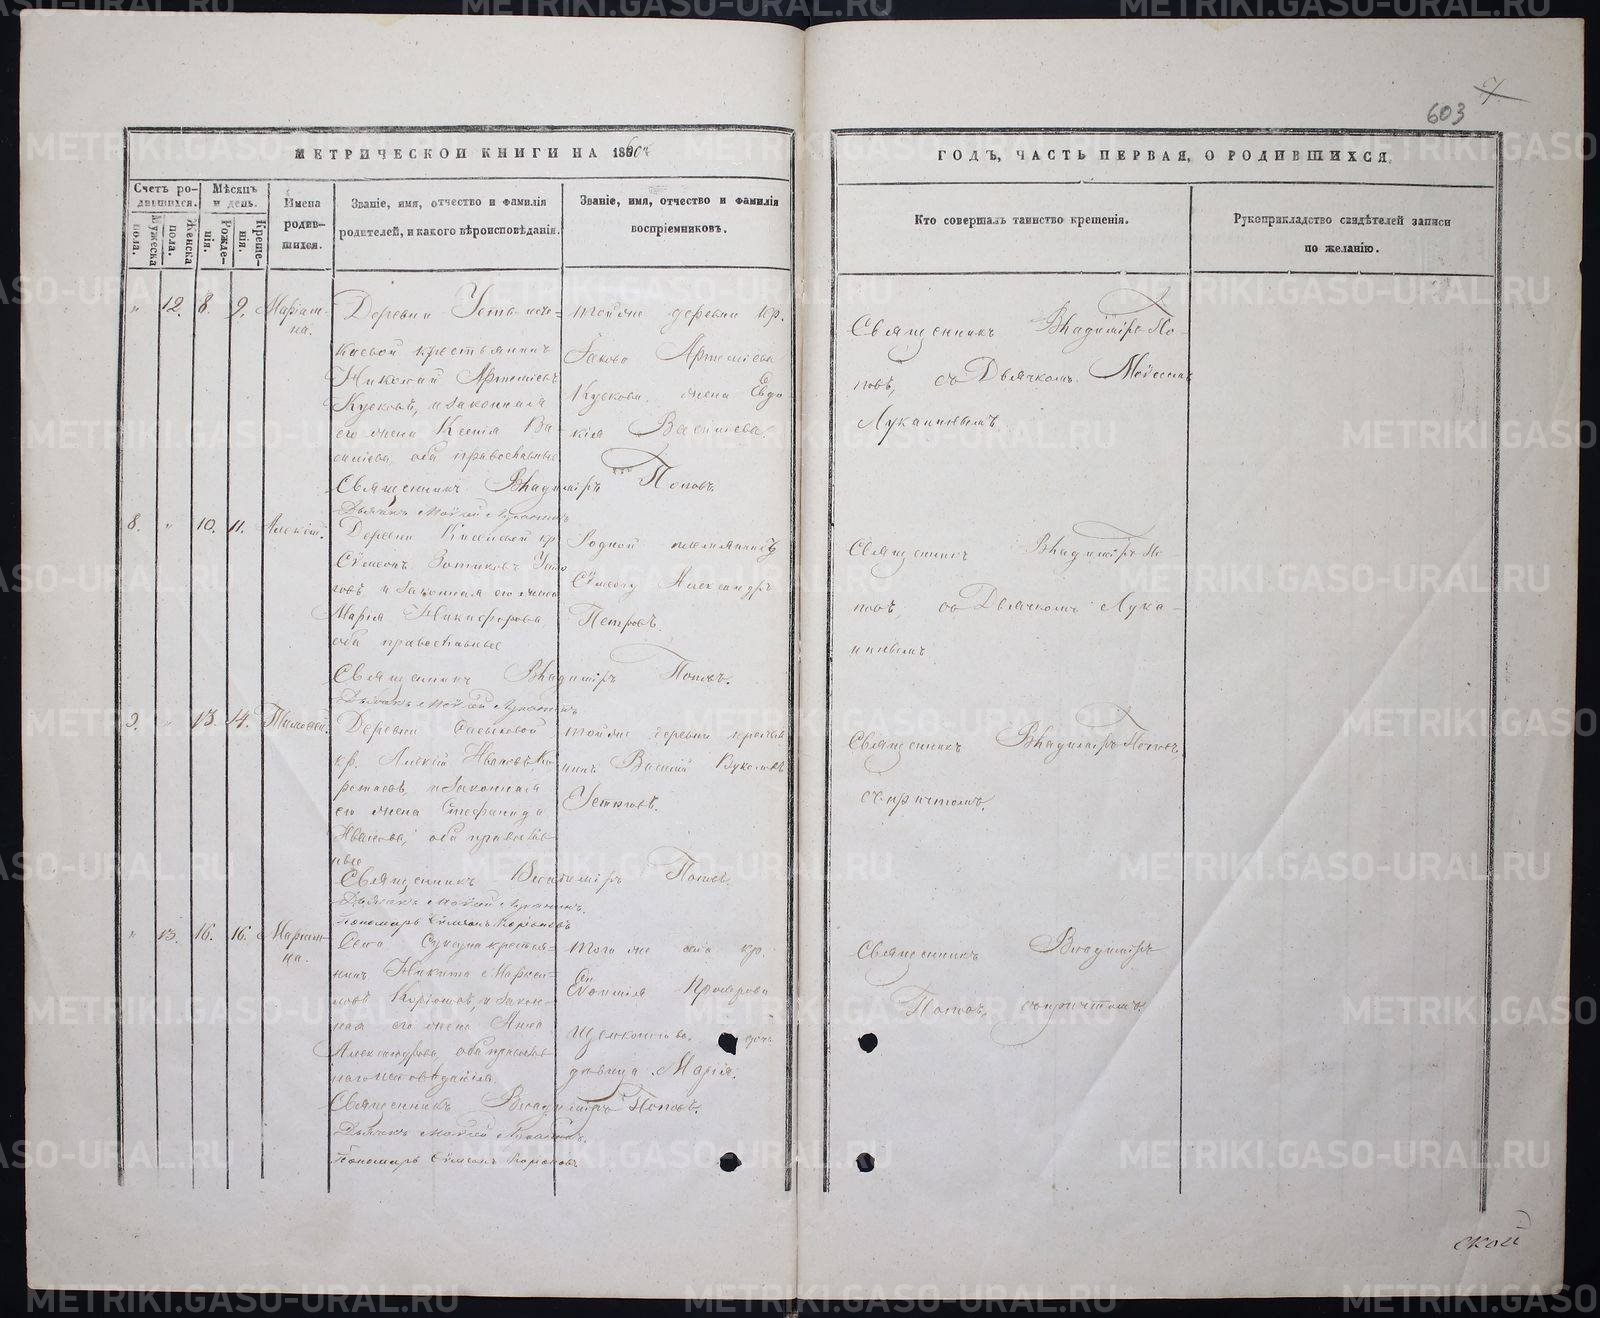 603
7
МЕТРИЧЕСКОЙ КНИГИ НА 1860й
ГОДЪ, ЧАСТЬ ПЕРВАЯ, О РОДИВШИХСЯ.
Счетъ ро-
дившихся.
Мѣсяцъ
и день.
Мужеска
пола.
Женска
пола.
Рожде-
нія.
Креще-
нія.
Имена
родив-
шихся.
Званіе, имя, отчество и фамилія
родителей, и какого вѣроисповѣданія.
Званіе, имя, отчество и фамилія
воспріемниковъ.
Кто совершалъ таинство крещенія.
Рукоприкладство свидѣтелей записи
по желанію.
" 12. 8. 9. Маріам-
на.
Деревни
крестьянинъ
Николай Артемьевъ
Кусковъ, и законная
его жена Ксенія Ва-
сильева, оба православные
Священникъ Владиміръ Поповъ.
Дьячекъ Мойсей Луканинъ
тойже деревни кр.
Іаковъ Артемьевъ
Кусковъ, жена Евдо
кія Васильева.
Священникъ Владиміръ По-
повъ, съ Дьячкомъ Мойсеемъ
Луканинымъ.
8. " 10. 11. Алексій.
Деревни кр.
Сѵмеонъ Зотиковъ
и законная его жена
Марія Никифорова
оба православные
Священникъ Владиміръ Поповъ.
Дьячекъ Мойсей Луканинъ
Родной племянникъ
Сѵмеону Александръ
Петровъ.
Священникъ Владиміръ По-
повъ, съ Дьячкомъ Лука-
нинымъ.
9. " 13. 14. Тимофей.
Деревни
кр. Алексій Ивановъ Ко-
и законная
его жена Стефанида
Иванова, оба православ-
ные
Священникъ Владиміръ Поповъ.
Дьячекъ Мойсей Луканинъ.
Пономарь Сѵмеонъ Коріоновъ
тойже деревни крестья
нинъ Василій Вуколовъ
Устюговъ.
Священникъ Владиміръ Поповъ,
съ причтомъ.
" 13. 16. 16. Маріам-
на.
Села крестья-
нинъ Никита
и закон-
ная его жена Анна
Александрова, оба православ-
наго исповѣданія.
Священникъ Владиміръ Поповъ.
Дьячекъ Мойсей Луканинъ.
Пономарь Сѵмеонъ Коріоновъ.
того же села кр.
Евѳимія
дочь
дѣвица Марія.
Священникъ Владиміръ
Поповъ, съ причтомъ.
ской
METRIKI.GASO-URAL.RU